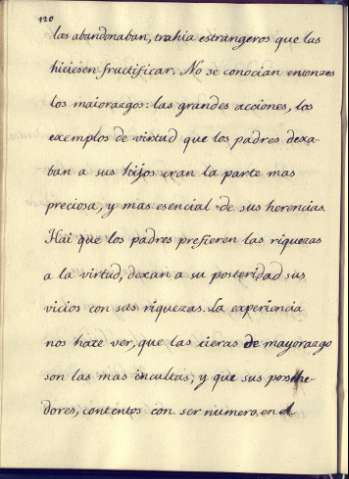 120
las abandonaban, trahia estrangeros que las
hiciesen fructificar. No se conocian entonzes
los maiorazgos: las grandes acciones, los
exemplos de virtud que los padres dexa-
ban a sus hijos eran la parte mas
preciosa, y mas esencial de sus herencias.
Hai que los padres prefieren las riquezas
a la virtud, dexan a su posteridad sus
vicios con sus riquezas. La experiencia
nos haze ver, que las tieras de mayorazgo
son las mas incultas; y que sus poshe-
dores, contentos con ser numero, en el